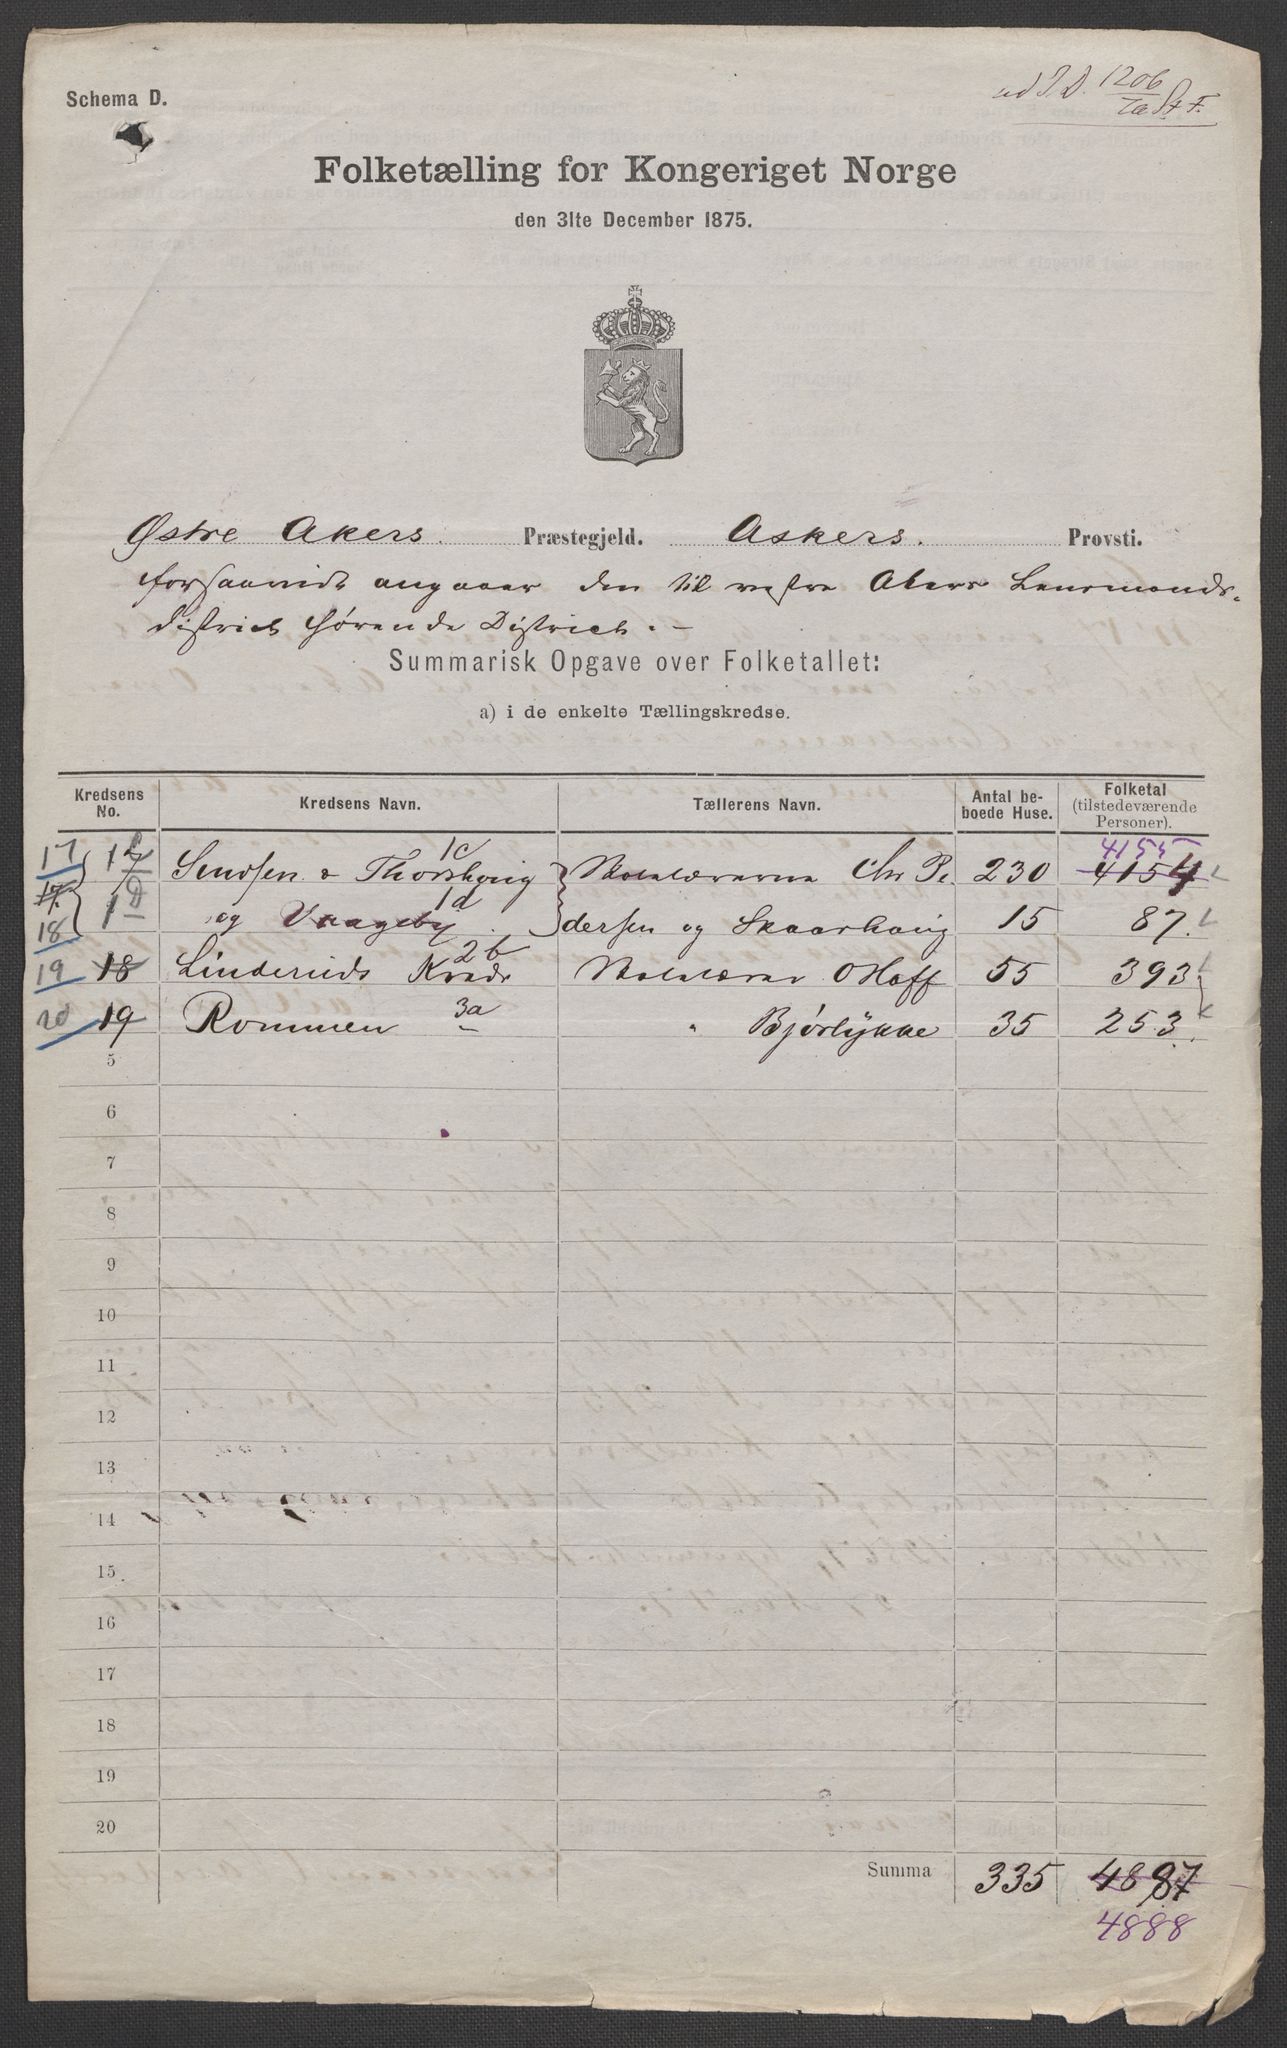 ad J.D. 1206
Schema D.
Folketælling for Kongeriget Norge
den 31te December 1875.
Østre Akers. Præstegjeld. Askers. Provsti.
forsaavidt angaaer den til vestre Akers Lensmands-
district hørende District. -
Summarisk Opgave over Folketallet:
a) i de enkelte Tællingskredse.
Kredsens No. Kredsens Navn. Tællerens Navn. Antal be-boede Huse. Folketal (tilstedeværende Personer).
4155
17 Sinsen & Thorshoug 1c Skolelærerne Chr Pe- 230 4154
17. 18 1D og Vaageby 1d dersen og Skaarhoug 15 87.
19 18 Linderuds Kreds 2b Skolelærer O Hoff 55 393
20 19 Rommen 3a " Bjørlykke 35 253.
5
6
7
8
9
10
11
12
13
14
15
16
17
18
19
20
Summa 335 4887
4888